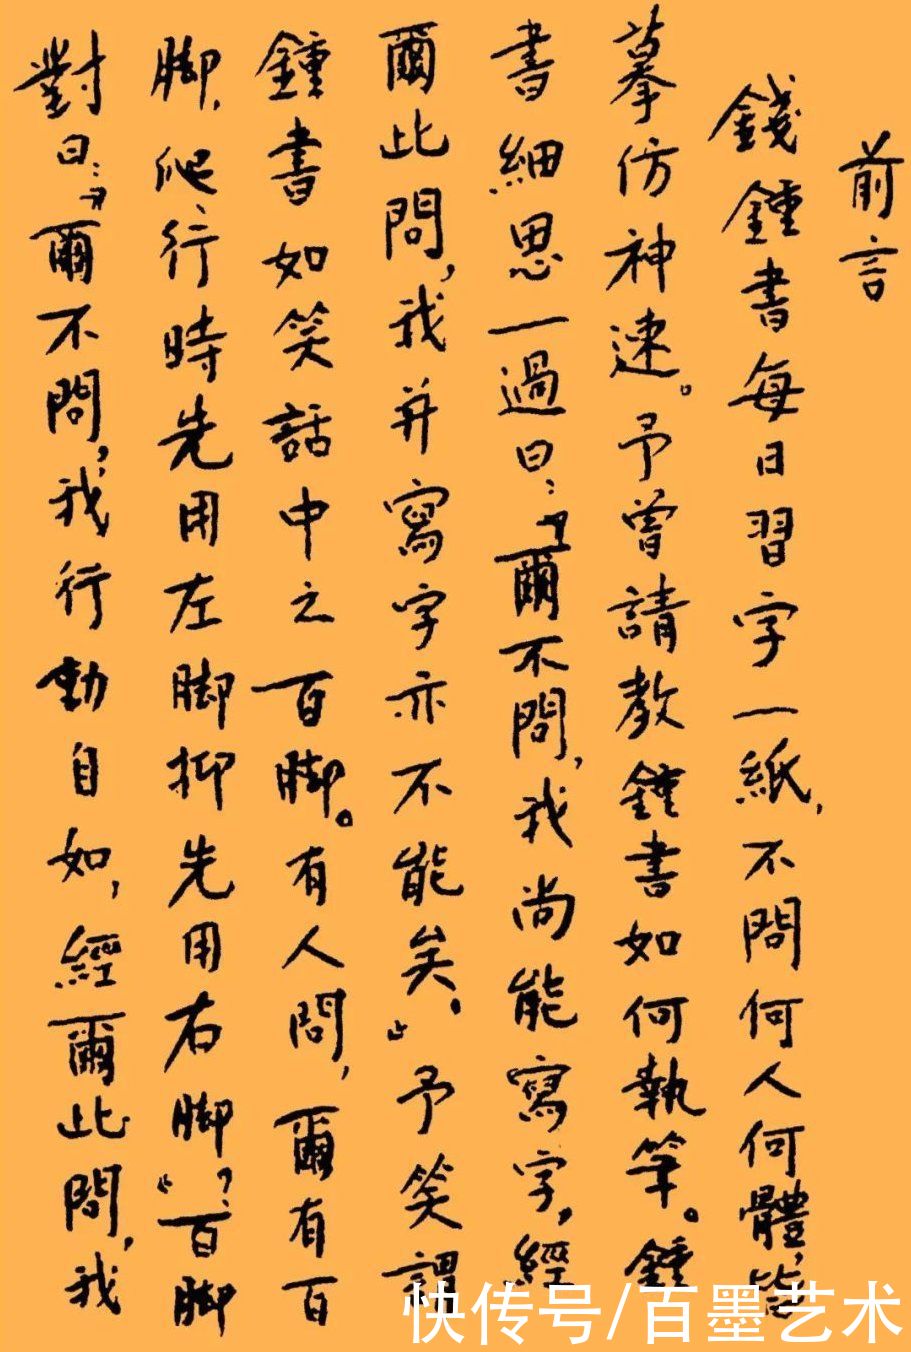 前言
錢鍾書每日習字一紙,不問何人何體,皆
摹仿神速。予曾請教鍾書如何執筆。鍾
書細思一過曰:“爾不問,我尚能寫字,經
爾此問,我并寫字亦不能矣。”予笑謂
鍾書如笑話中之百脚。有人問,爾有百
脚,爬行時先用左脚抑先用右脚?”百脚
對曰:“爾不問,我行動自如,經爾此問,我
快传号/百墨艺术